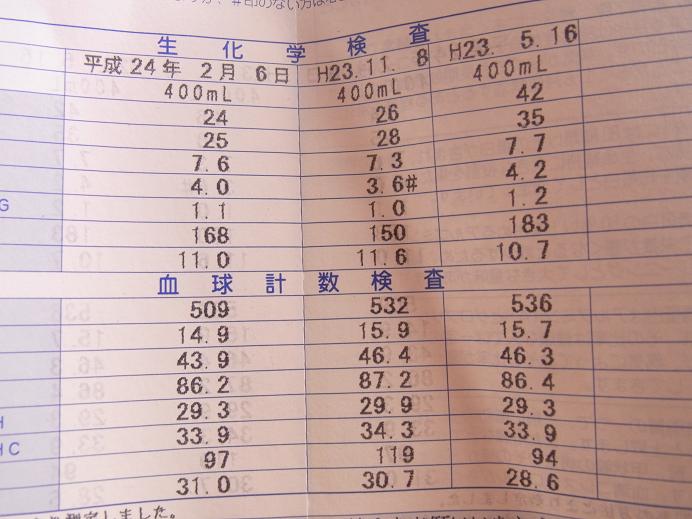 #印のない方は
生化学検査
平成24年 2月 6日 H23.11. 8 H23. 5.16
400mL 400mL 400mL
24 26 42
25 28 35
7.6 7.3 7.7
4.0 3.6# 4.2
G 1.1 1.0 1.2
168 150 183
11.0 11.6 10.7
血球計数検査
509 532 536
14.9 15.9 15.7
43.9 46.4 46.3
86.2 87.2 86.4
H 29.3 29.9 29.3
HC 33.9 34.3 33.9
97 119 94
31.0 30.7 28.6
測定しました。